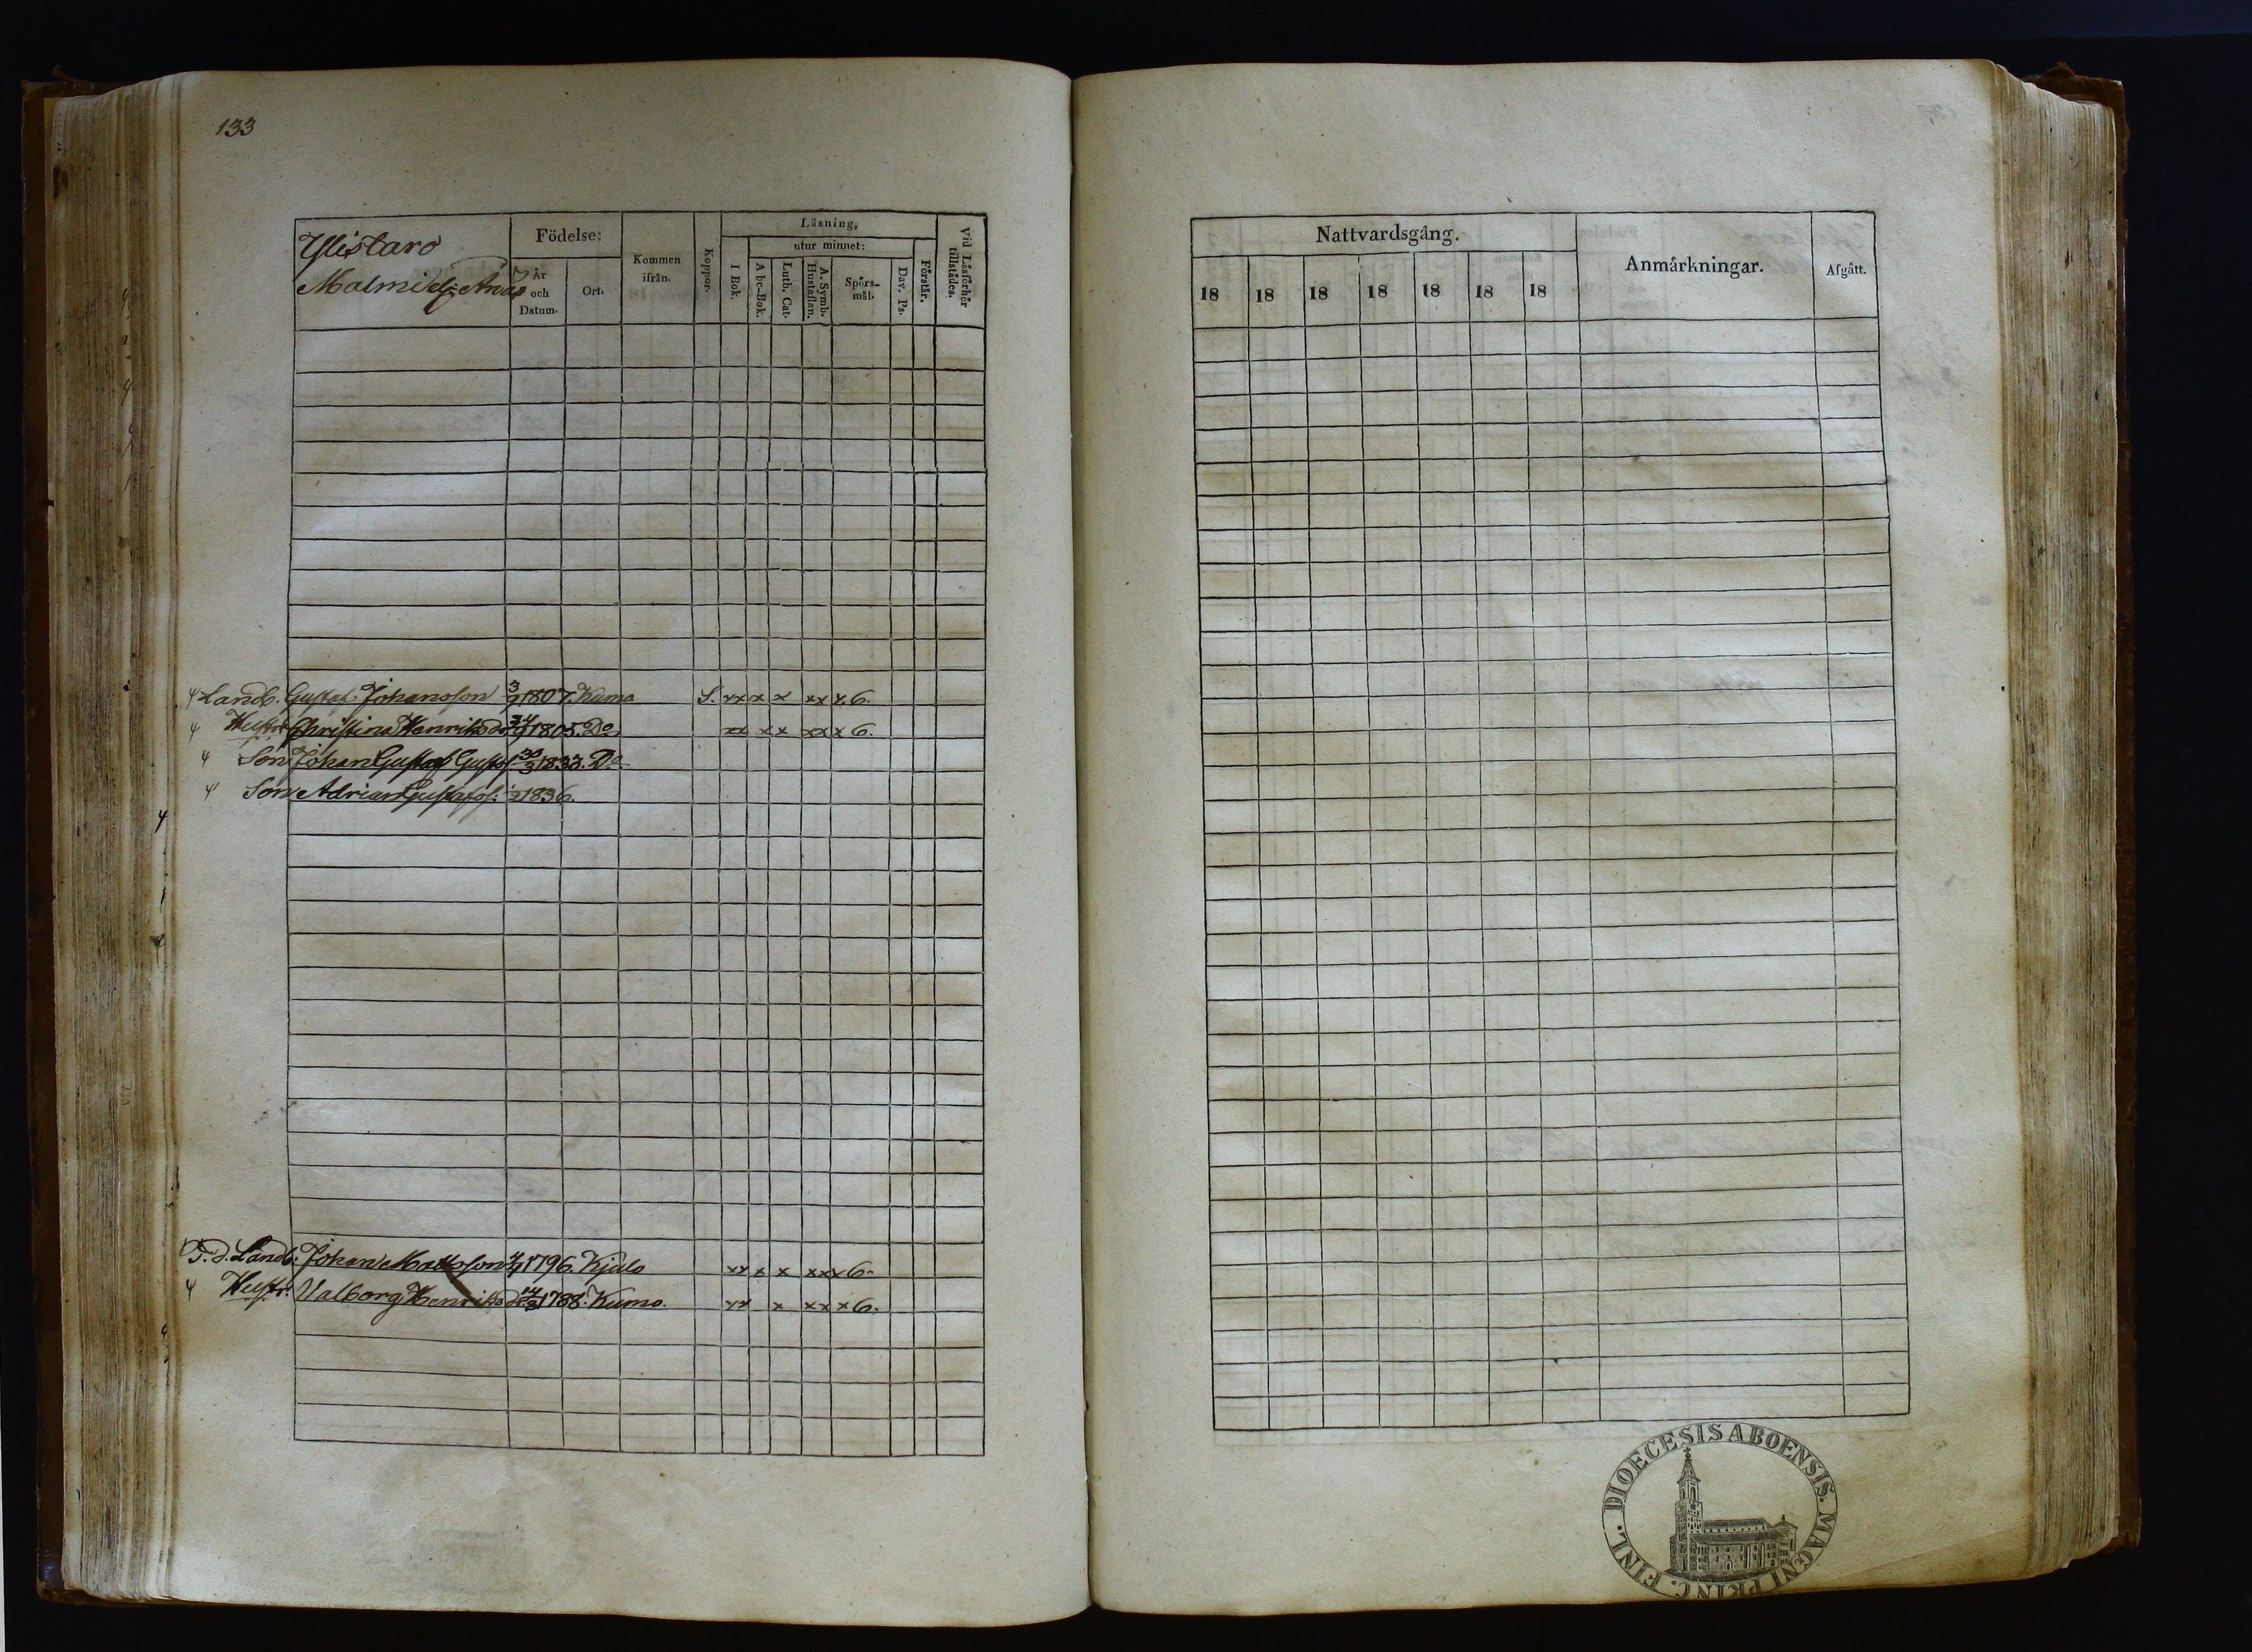 133
Ylistaro
Malmi
Födelse:
År och Datum.
Ort.
Kommen ifrån.
Koppor.
Läsning,
utur minnet:
I Bok.
A bc-Bok.
Luth. Cat.
A. Symb. Hustaflan.
Spörs-mål.
Dav. Ps.
Förstår.
Vid Läsförhör tillstädes.
Landb. Gustaf Johansson 3/9 1807. Kumo S. xx x x xx x 6.
Hustr. Christina Henriksdr 1805. Do xx xx xx x 6.
Son Johan Gustaf Gustafs 30/3 1833. Do
Son Adrian Gustafss: 1836.
T. d. Landb: Johan Mattsson 1796. Kjulo xx x x xxx 6.
Hustr. Valborg Henriksdr 14/3 1788. Kumo. xx x xx x 6.
Nattvardsgång.
Anmärkningar.
Afgått.
18 18 18 18 18 18 18
DIOECESIS ABOENSIS. MAGNI PRINC. FINL.